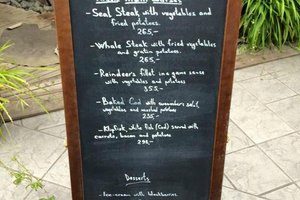 - Seal Steak with vegetables and
fried potatoes.
265,-
- Whale Steak with fried vegetables
and gratin potatoes.
265,-
- Reindeers fillet in a game sause
with vegetables and potatoes
355,-
- Baked Cod with cucumber salat,
vegetables and mashed potatoes
235,-
- Klipfisk, white fish (Cod) served with
carrots, bacon and potatoes
298,-
Desserts
- Ice-cream with blackberries